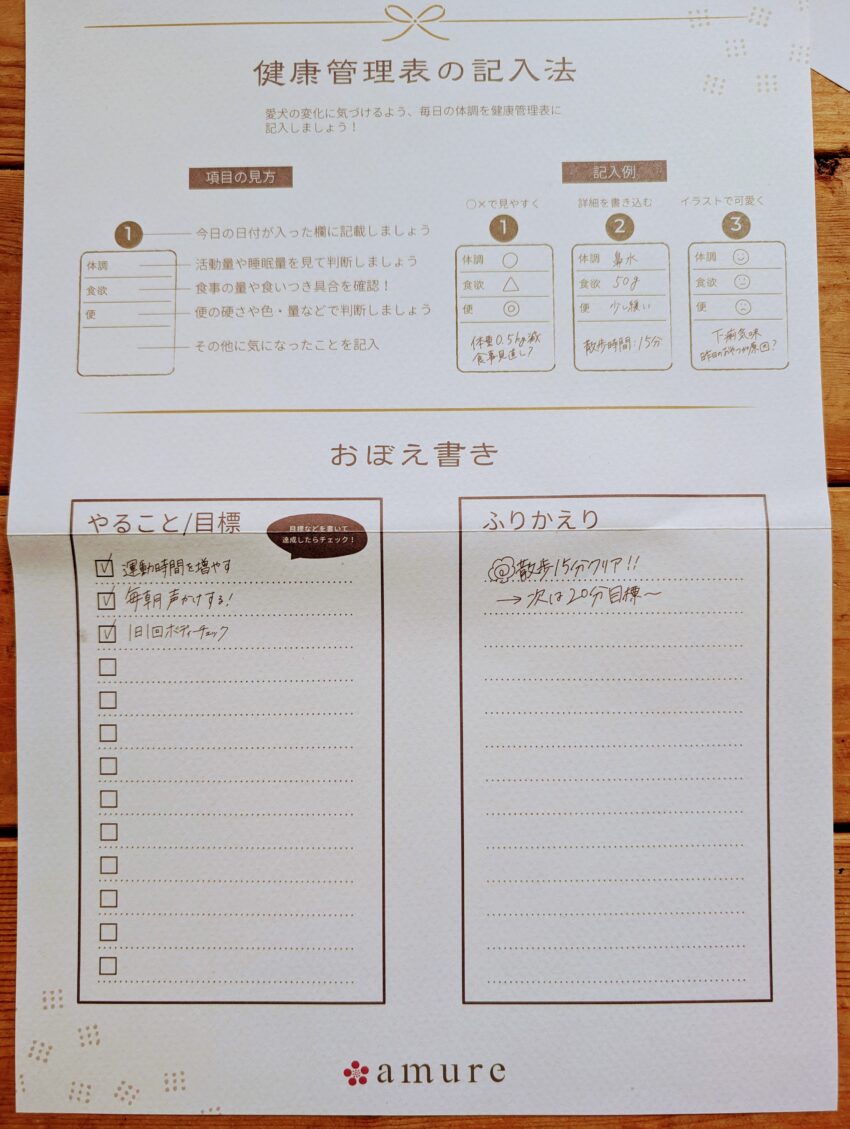 健康管理表の記入法
愛犬の変化に気づけるよう、毎日の体調を健康管理表に
記入しましょう！
項目の見方
1
今日の日付が入った欄に記載しましょう
体調
活動量や睡眠量を見て判断しましょう
食欲
食事の量や食いつき具合を確認！
便
便の硬さや色・量などで判断しましょう
その他に気になったことを記入
記入例
○×で見やすく
1
体調 ○
食欲 △
便 ◎
体重0.5kg減
食事見直し？
詳細を書き込む
2
体調 鼻水
食欲 50g
便 少し緩い
散歩時間：15分
イラストで可愛く
3
体調
食欲
便
下痢気味
昨日のおやつが原因？
おぼえ書き
やること/目標
目標などを書いて
達成したらチェック！
運動時間を増やす
毎朝声かけする！
1日1回ボディーチェック
ふりかえり
散歩15分クリア!!
→次は20分目標〜
amure